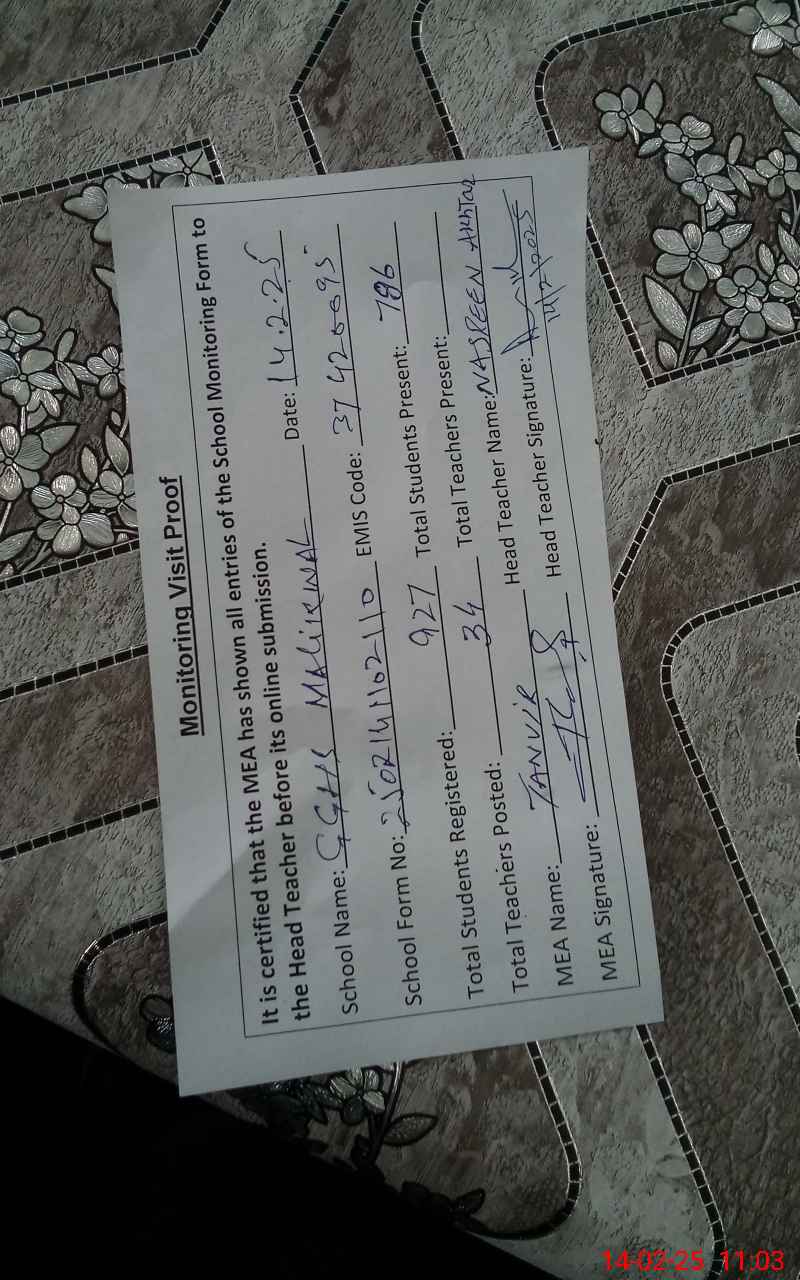 Monitoring Visit Proof
It is certified that the MEA has shown all entries of the School Monitoring Form to
the Head Teacher before its online submission.
Date: 14.2.25
School Name: GGHS MALIKWAL
School Form No: 2502141102110 EMIS Code: 37420095
Total Students Registered: 927 Total Students Present: 786
Total Teachers Posted: 34 Total Teachers Present:
MEA Name: TANVIR Head Teacher Name: NASREEN AKHTAR
MEA Signature: Head Teacher Signature:
14/2/2025
14-02-25 11:03